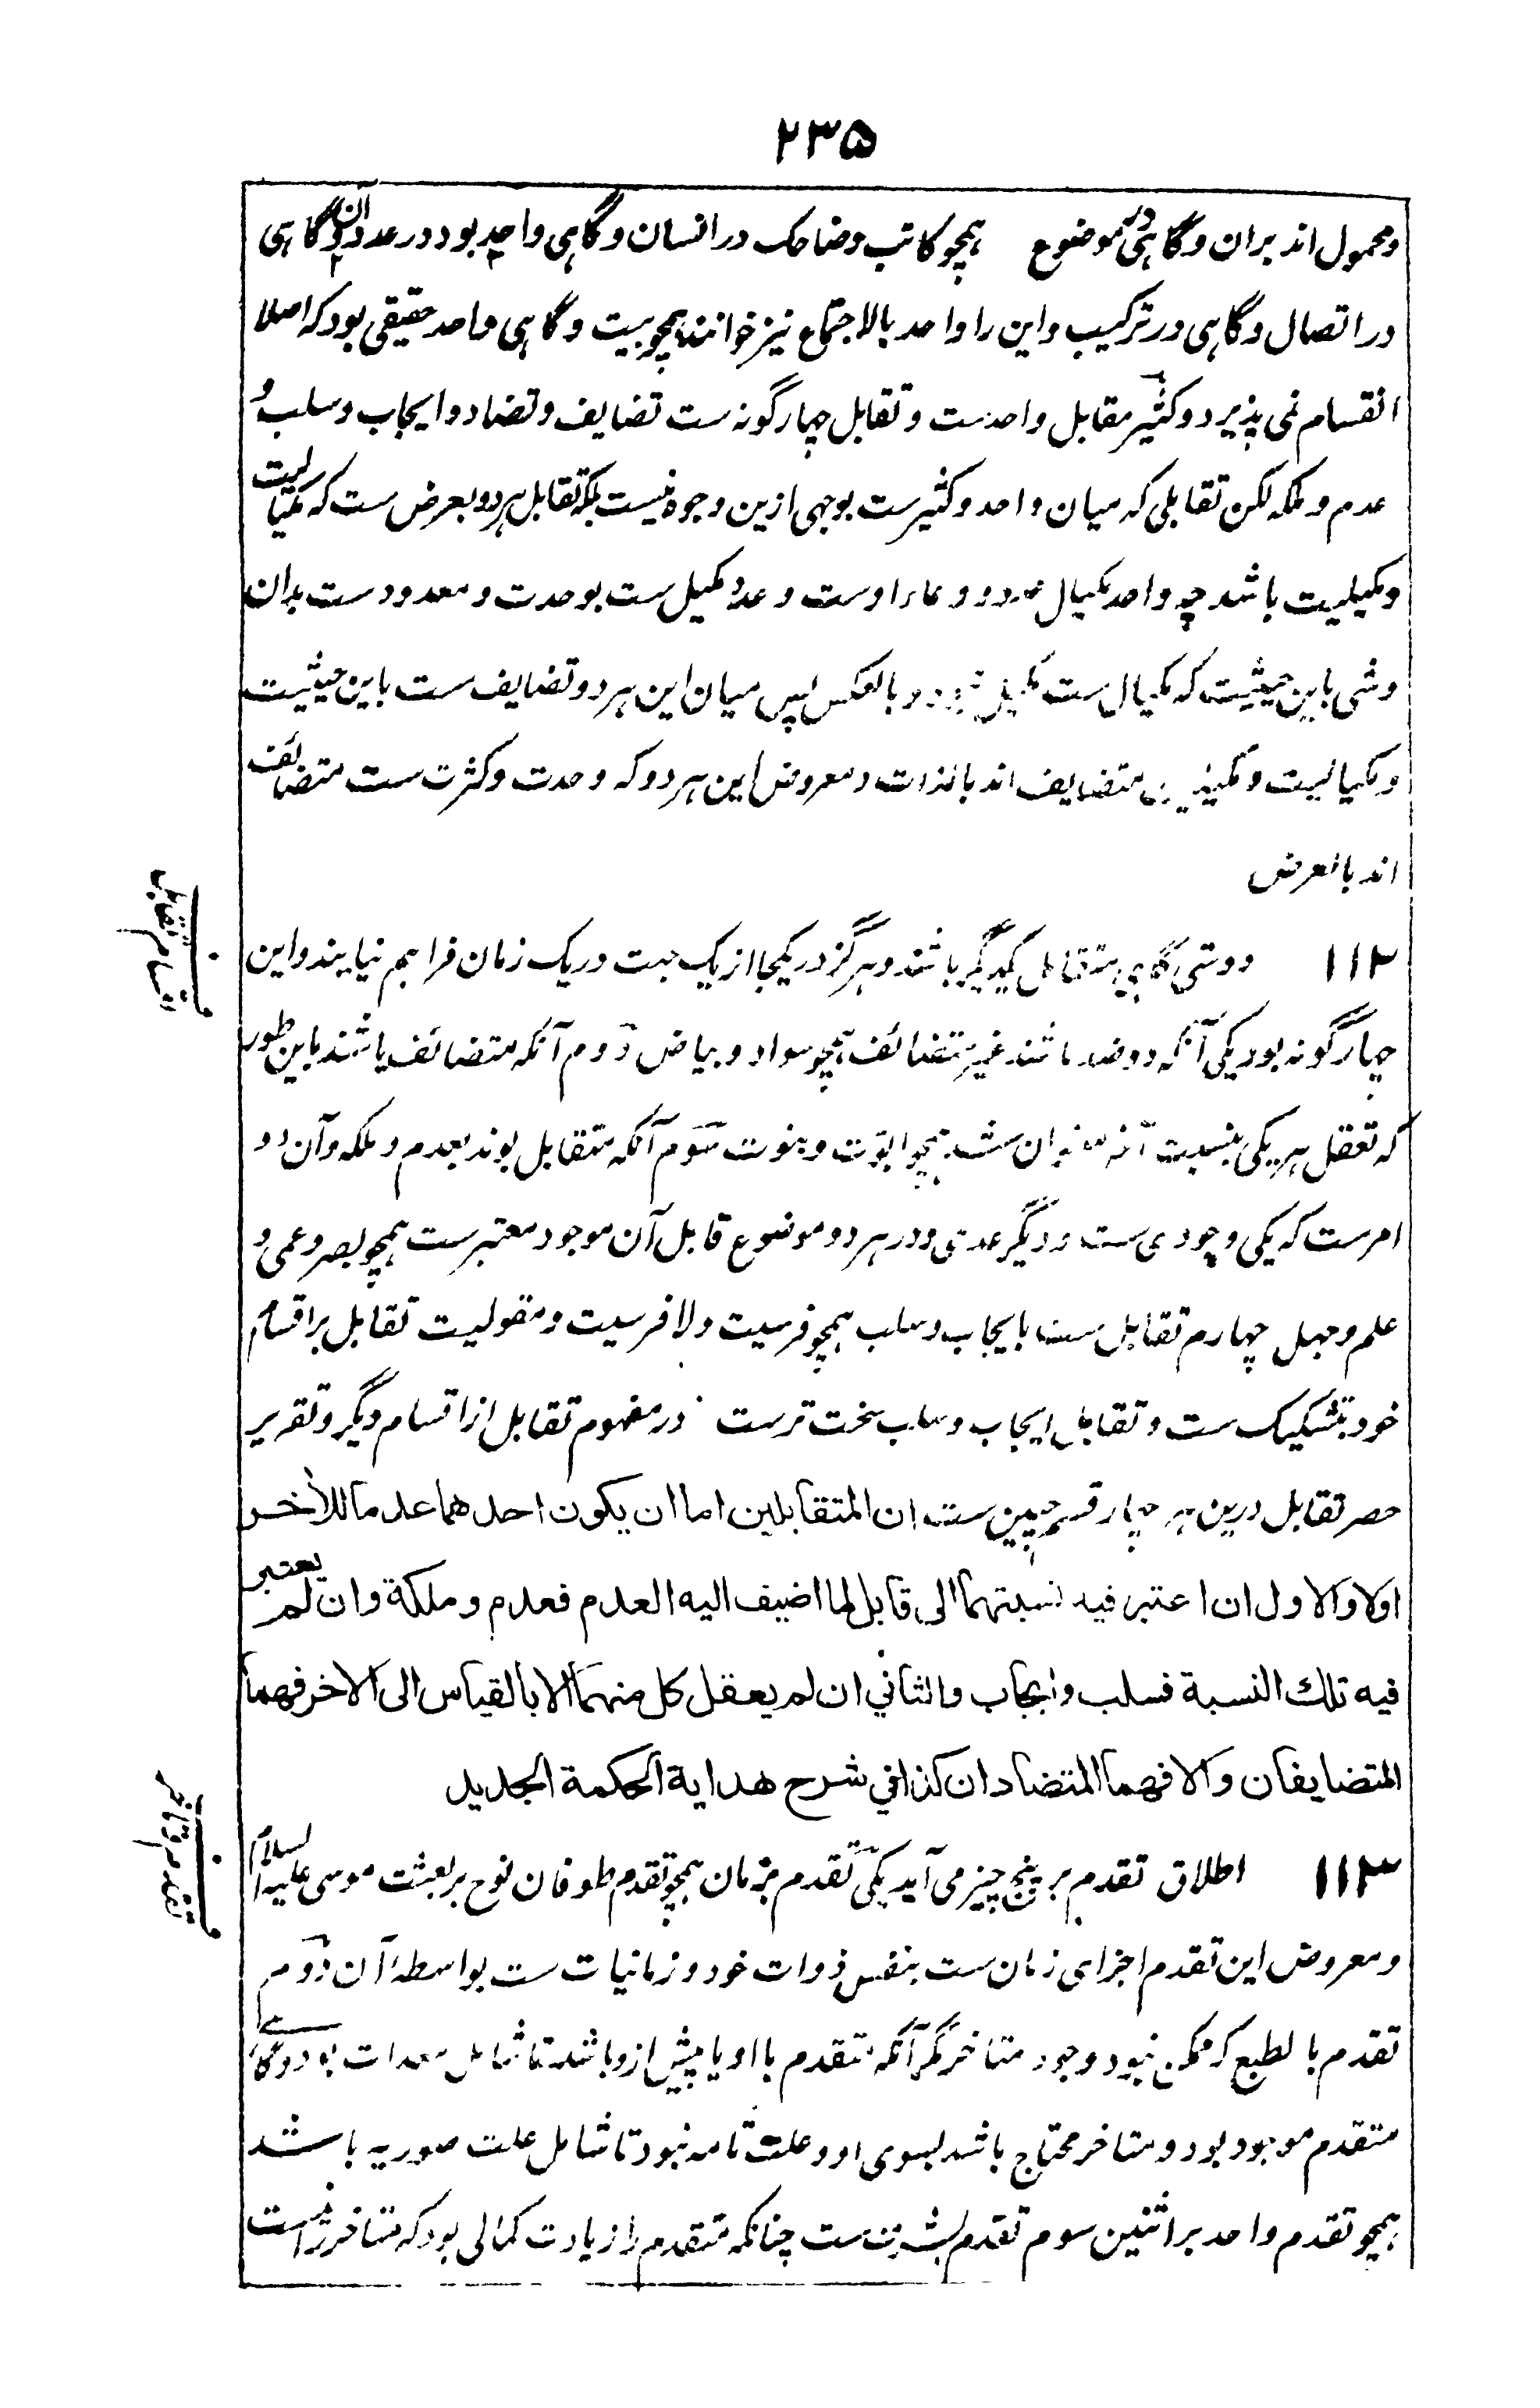 ۲۳۵
ومحمول اند بران و گاهی در موضوع همچو کاتب و ضاحک در انسان و گاهی واحد بود در عدد آن و گاهی
در اتصال و گاهی در ترکیب و این را واحد بالاجتماع نیز خوانند همچو بیت و گاهی واحد حقیقی بود که اصلا
انقسام نمی پذیرد و کثیر مقابل واحدست و تقابل چهارگونه ست تضایف و تضاد و ایجاب و سلب و
عدم و ملکه لکن تقابلی که میان واحد و کثیرست بوجهی ازین وجوه نیست بلکه تقابل هر دو بعرض ست که مکیالیت
و مکیلیت باشد چه واحد مکیال عدد و عاد اوست و عدد مکیل ست بوحدت و معدودست بدان
و شی باین حیثیت که مکیال ست مکیل نبود و بالعکس پس میان این هر دو تضایف ست باین حیثیت
و مکیالیت و مکیلیت متضایف اند بالذات و معروض این هر دو که وحدت و کثرت ست متضائف
اند بالعرض
اقسام تقابل
۱۱۲ دو شی گاهی متقابل یکدیگر باشند و هرگز در یکجا از یک جهت در یک زمان فراهم نیایند و این
چهارگونه بود یکی آنکه دو ضد باشند غیر متضائف همچو سواد و بیاض دوم آنکه متضائف باشند باین طور
که تعقل هر یکی بنسبت همچو ابوت و بنوت سوم آنکه متقابل بوند بعدم و ملکه و آن دو
امرست که یکی وجودی ست و دیگر عدمی و در هر دو موضوع قابل آن موجود معتبرست همچو بصر و عمی و
علم و جهل چهارم تقابل ست بایجاب و سلب همچو فرسیت و لا فرسیت و مقولیت تقابل بر اقسام
خود بتشکیک ست و تقابل ایجاب و سلب سخت ترست در مفهوم تقابل از اقسام دیگر و تقریر
حصر تقابل درین هر چهار قسم چنین ست ان المتقابلین اما ان یکون احدهما عدما للاخر
اولا والاول ان اعتبر فیه نسبتهما الی قابل لما اضیف الیه العدم فعدم وملکة وان لم یعتبر
فیه تلک النسبة فسلب وایجاب والثانی ان لم یعقل کل منهما الا بالقیاس الی الاخر فهما
المتضایفان والا فهما المتضادان کذا فی شرح هدایة الحکمة الجدید
تقدم و تاخر
۱۱۳ اطلاق تقدم بر پنج چیز می آید یکی تقدم بزمان همچو تقدم طوفان نوح بر بعثت موسی علیه السلام
و معروض این تقدم اجزای زمان ست بنفس ذوات خود و زمانیات ست بواسطهٔ آن دوم
تقدم بالطبع که ممکن نبود وجود متاخر مگر آنکه متقدم با او یا پیش ازو باشد تا شامل معدات بود و گاهے
متقدم موجود بود و متاخر محتاج باشد بسوی او و علت تامه نبود تا شامل علت صوریه باشد
همچو تقدم واحد بر اثنین سوم تقدم بشرف ست چنانکه متقدم را زیادت کمالی بود که متاخر را نیست